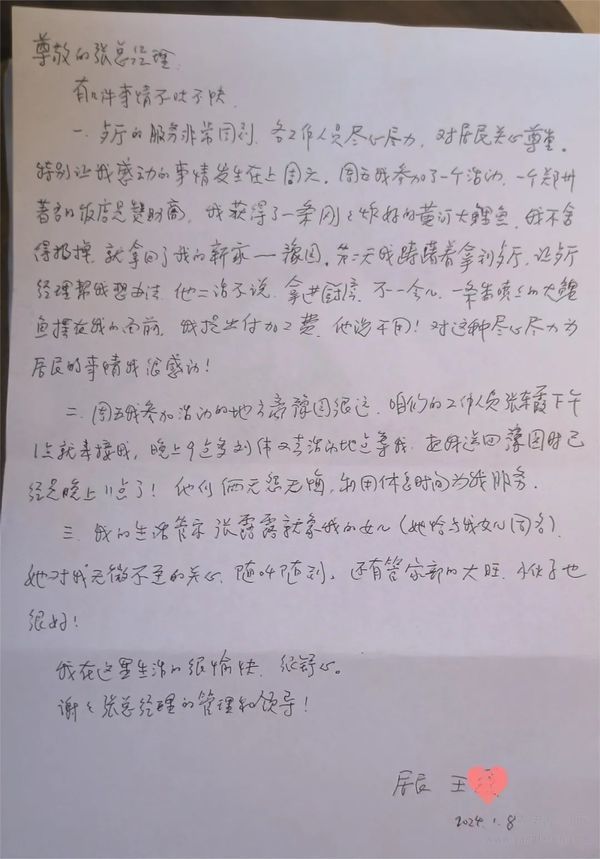 尊敬的张总经理:
有几件事情不吐不快.
一.餐厅的服务非常周到.各工作人员尽心尽力,对居民关心尊重。
特别让我感动的事情发生在上周六.周五我参加了一个活动,一个郑州
著名的饭店是赞助商,我获得了一条刚刚炸好的黄河大鲤鱼,我不舍
得扔掉.就拿回了我的新家一豫园,第二天我踌躇着拿到餐厅,让餐厅
经理帮我想办法.他二话不说.拿进厨房.不一会儿.一条香喷喷的大鲤
鱼摆在我的面前.我提出付加工费.他说不用!对这种尽心尽力为
居民的事情我很感动!
二.周五我参加活动的地方离豫园很远.咱们的工作人员张东霞下午
1点就来接我,晚上9点多刘伟又去活动地点等我.把我送回豫园时已
经是晚上11点了!他们俩无怨无悔,利用休息时间为我服务.
三.我的生活管家张露露就象我的女儿(她恰与我女儿同名).
她对我无微不至的关心.随叫随到。还有管家部的大旺.小伙子也
很好!
我在这里生活的很愉快.很舒心。
谢谢张总经理的管理和领导!
居民 王
2024.1.8